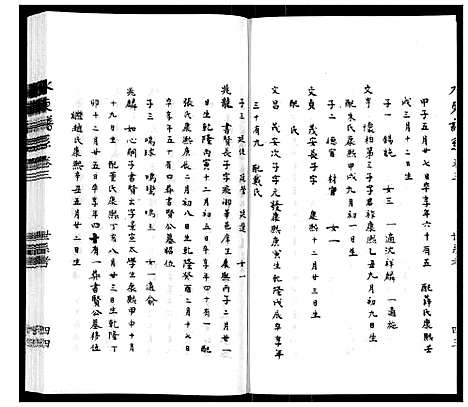 甲子五月十七日卒享年六十有五 配薛氏康熙壬
戌三月十二日生
子一 錫 女三 一適沈祥麟 一適施
文亨 懷柏第三子字君祚康熙乙丑九月初九日生
配朱氏康熙甲戌九月初一日生
子二 德富 財寶 女一
文貞 茂安長子字 康熙十二月廿三日生
配 氏
文昌 茂安次子字元發康熙庚寅生乾隆戊辰卒享年
三十有九 配戴氏
子三 女一
兆龍 書賢長子字 湘華邑庠生康熙丙子二月廿一
日生乾隆丙寅十二月初五日卒享年五十有一 配
張氏康熙庚辰七月初八日生乾隆癸酉二月十七日
卒享年五十有四葬書賢公墓昭位
子三 鳴球 鳴鑾 鳴玉 女一適俞
兆麟 如心嗣子書賢出字景宣太學生康熙甲申十月
十九日生 配董氏康熙丁亥八月廿三日生乾隆丁
卯十二月廿五日卒享年四十有一葬書賢公墓穆位
繼趙氏康熙辛丑五月廿二日生
世系考
四三
世系考
四四